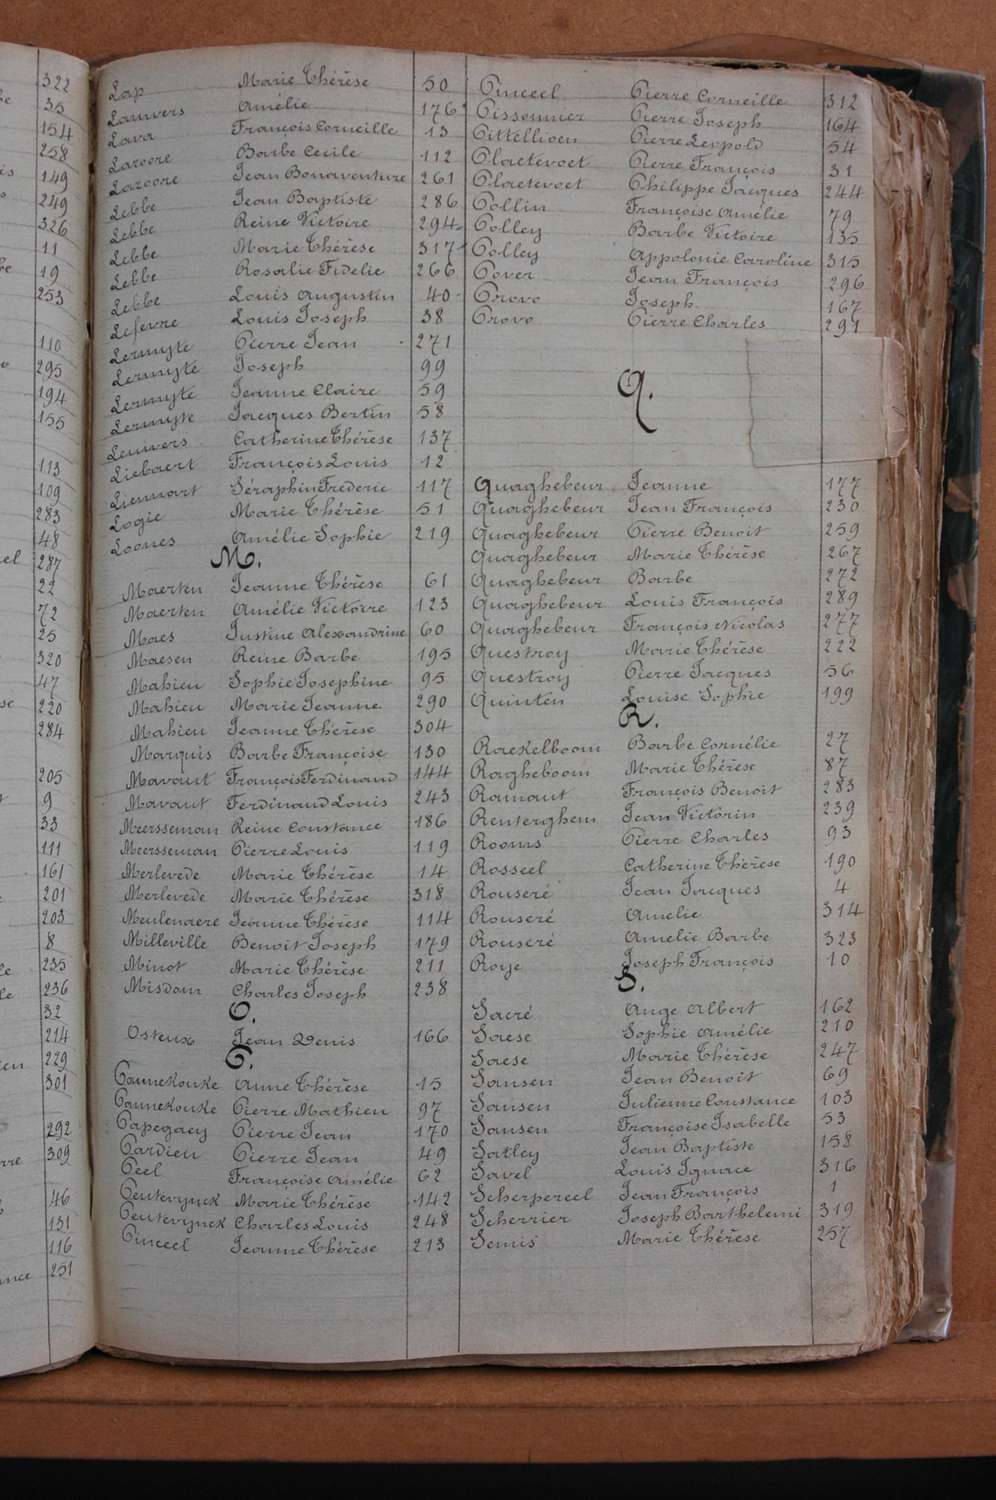 322
35
154
258
149
249
326
11
19
253
110
295
194
155
113
109
283
48
287
22
72
25
320
47
220
284
205
9
33
111
161
201
203
8
235
236
32
214
229
301
292
309
46
131
116
251
Lap Marie Thérèse 50
Lauwers Amélie 176
Lava François Corneille 13
Laroore Barbe Cecile 112
Laroore Jean Bonaventure 261
Lebbe Jean Baptiste 286
Lebbe Reine Victoire 294
Lebbe Marie Thérèse 317
Lebbe Rosalie Fidelie 266
Lebbe Louis Augustin 40
Lefevre Louis Joseph 38
Lermyte Pierre Jean 271
Lermyte Joseph 99
Lermyte Jeanne Claire 59
Lermyte Jacques Bertin 58
Leuivers Catherine Thérèse 137
Liebaert François Louis 12
Liennart Séraphin Frederic 117
Logie Marie Thérèse 51
Loones Amélie Sophie 219
M.
Maerten Jeanne Thérèse 61
Maerten Amélie Victoire 123
Maes Justine Alexandrine 60
Maesen Reine Barbe 195
Mahieu Sophie Josephine 95
Mahieu Marie Jeanne 290
Mahieu Jeanne Thérèse 304
Marquis Barbe Françoise 130
Mavaut François Ferdinand 144
Mavaut Ferdinand Louis 243
Meersseman Reine Constance 186
Meersseman Pierre Louis 119
Merlevede Marie Thérèse 14
Merlevede Marie Thérèse 318
Meulenaere Jeanne Thérèse 114
Milleville Benoit Joseph 179
Minot Marie Thérèse 211
Misdom Charles Joseph 238
O.
Osteux Jean Denis 166
P.
Pannekouke Anne Thérèse 15
Pannekouke Pierre Mathieu 97
Papegaey Pierre Jean 170
Pardieu Pierre Jean 49
Peel Françoise Amélie 62
Peuterynck Marie Thérèse 142
Peuterynck Charles Louis 248
Pinceel Jeanne Thérèse 213
Pinceel Pierre Corneille 312
Pissonnier Pierre Joseph 164
Pittellioen Pierre Leopold 54
Plaetevoet Pierre François 31
Plaetevoet Philippe Jacques 244
Pollin Françoise Amélie 79
Polley Barbe Victoire 135
Polley Appolonie Caroline 315
Pover Jean François 296
Provo Joseph 167
Provo Pierre Charles 291
Q.
Quaghebeur Jeanne 177
Quaghebeur Jean François 230
Quaghebeur Pierre Benoit 259
Quaghebeur Marie Thérèse 267
Quaghebeur Barbe 272
Quaghebeur Louis François 289
Quaghebeur François Nicolas 277
Questroy Marie Thérèse 222
Questroy Pierre Jacques 56
Quinten Louise Sophie 199
R.
Raekelboom Barbe Cornélie 27
Ragheboom Marie Thérèse 87
Ramaut François Benoit 283
Renterghem Jean Victorin 239
Rooms Pierre Charles 93
Rosseel Catherine Thérèse 190
Rouseré Jean Jacques 4
Rouseré Amelie 314
Rouseré Amelie Barbe 323
Roye Joseph François 10
S.
Sacré Ange Albert 162
Saese Sophie Amélie 210
Saese Marie Thérèse 247
Sansen Jean Benoit 69
Sansen Julienne Constance 103
Sansen Françoise Isabelle 53
Satley Jean Baptiste 158
Savel Louis Ignace 316
Scherpereel Jean François 1
Scherrier Joseph Barthelemi 319
Semis Marie Thérèse 257